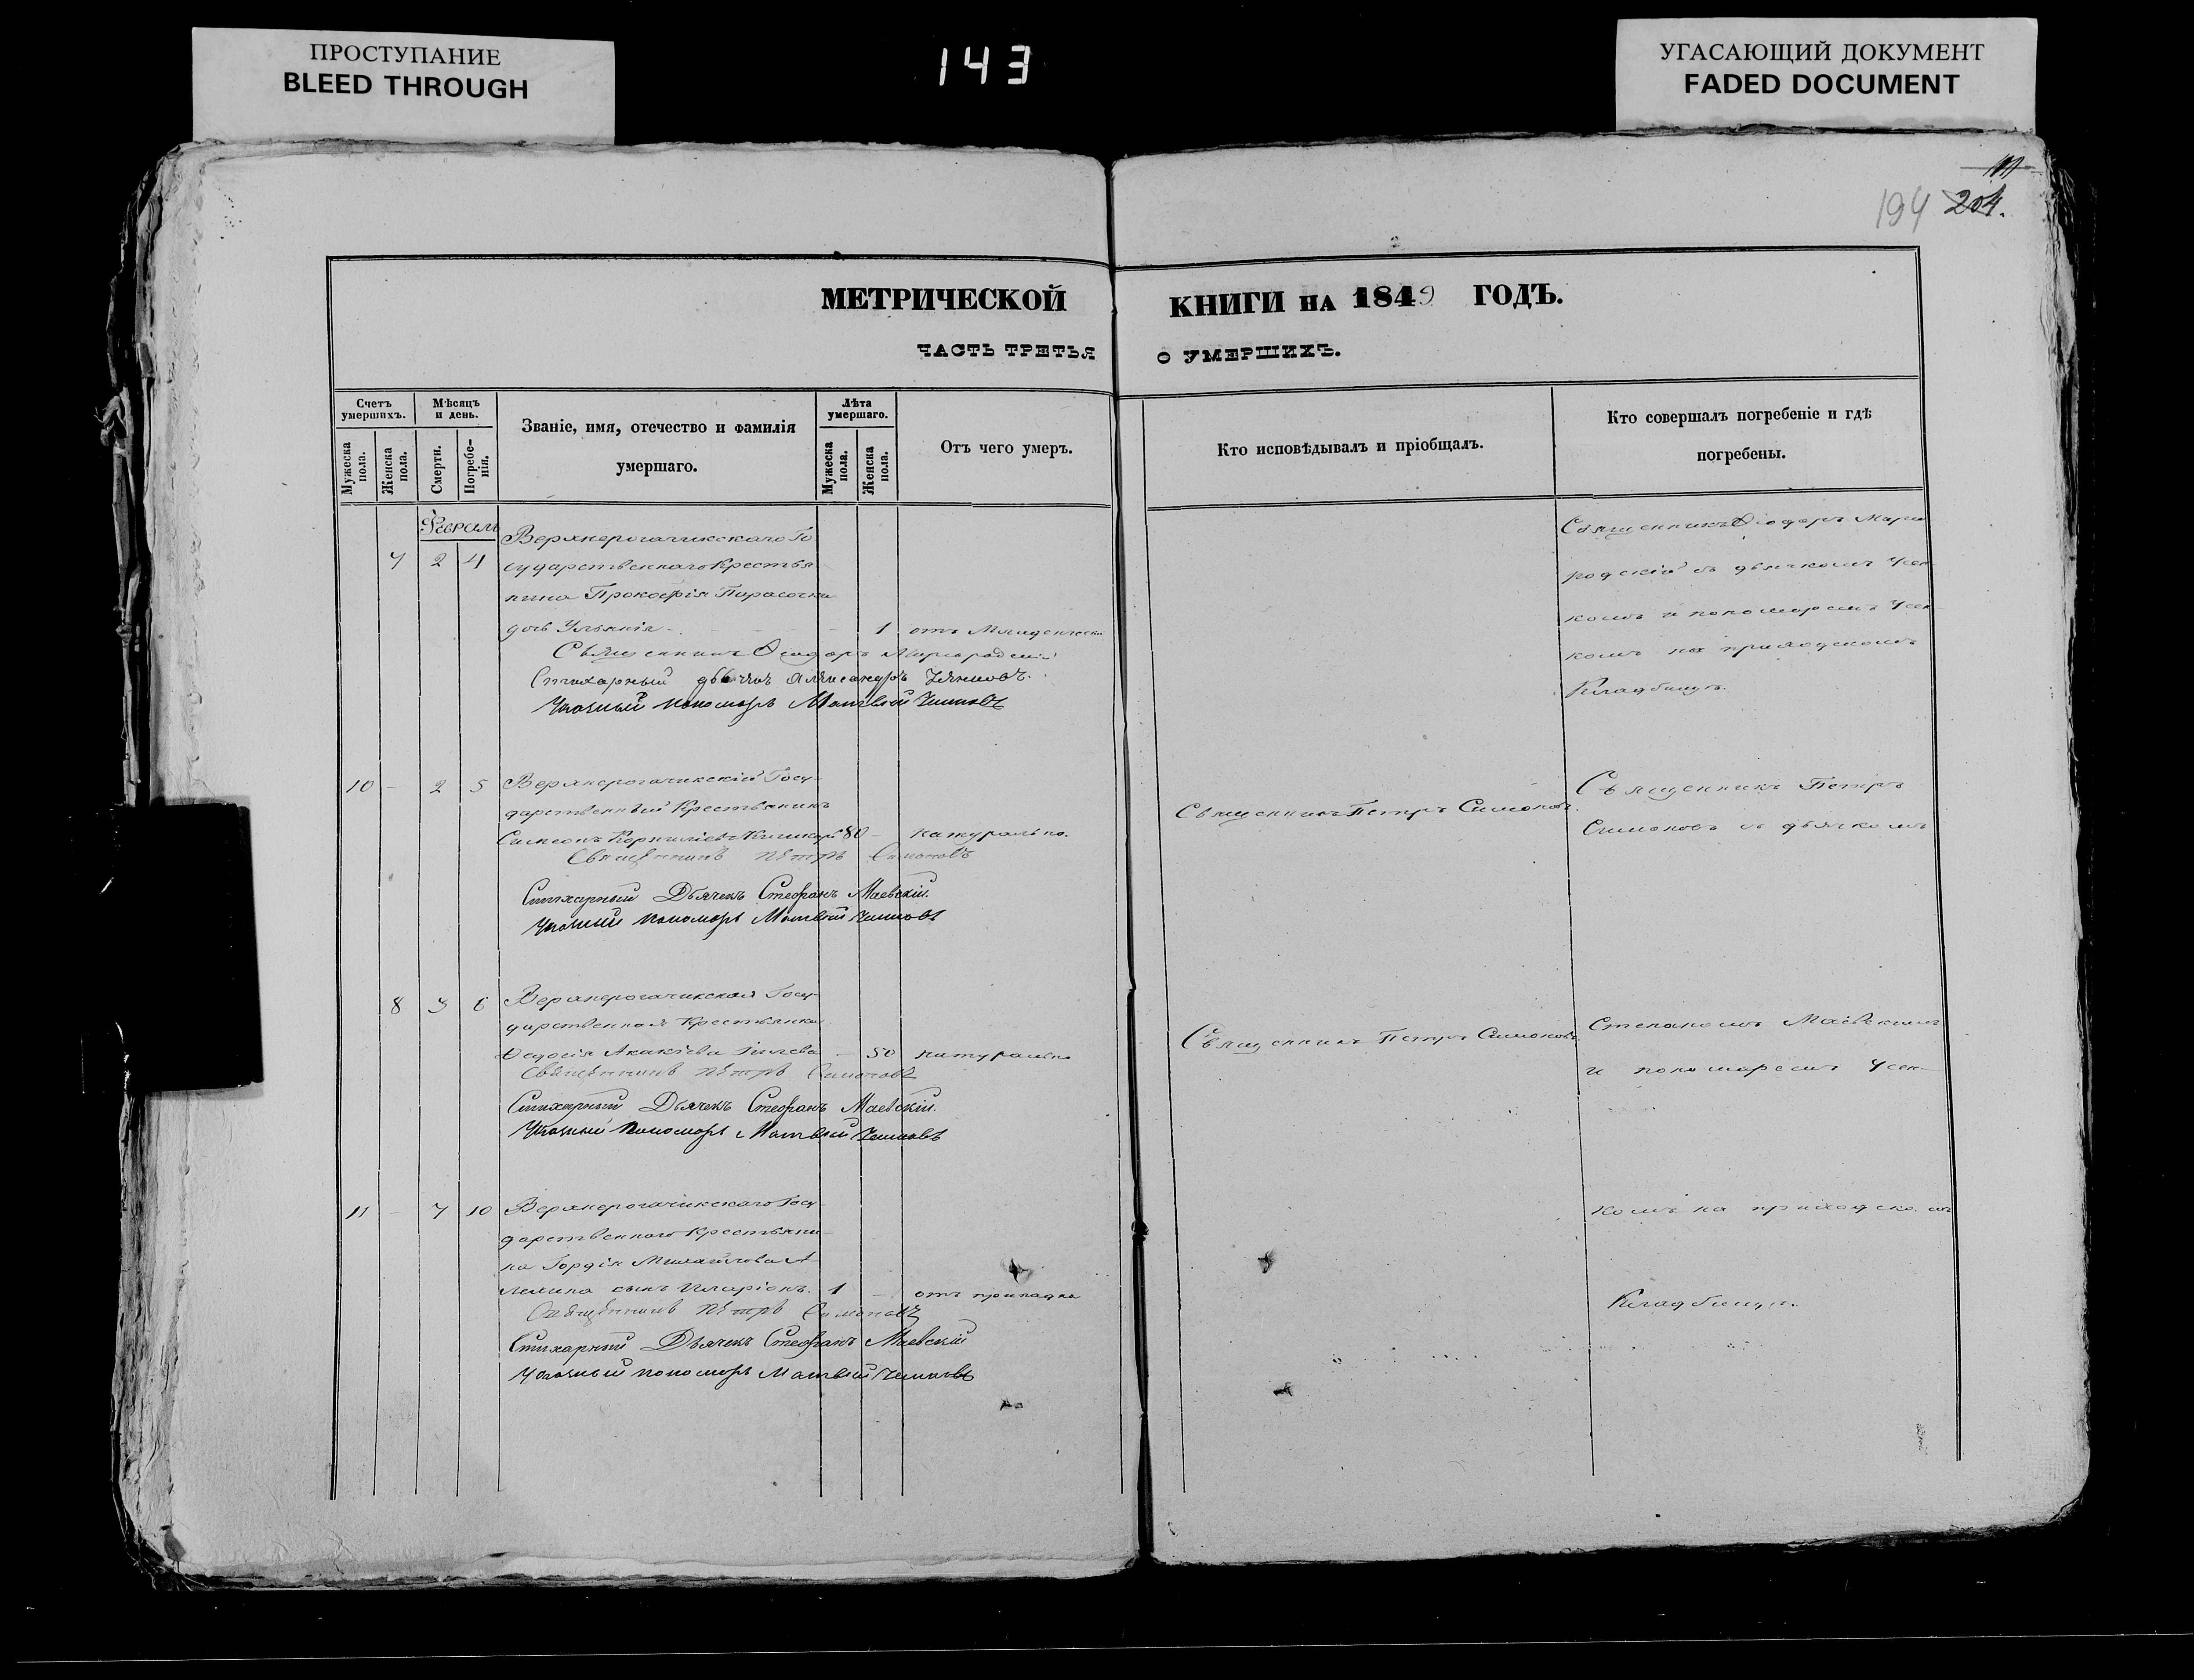 ПРОСТУПАНИЕ
BLEED THROUGH
143
УГАСАЮЩИЙ ДОКУМЕНТ
FADED DOCUMENT
194 204.
МЕТРИЧЕСКОЙ КНИГИ НА 1849 ГОДЪ.
ЧАСТЬ ТРЕТЬЯ О УМЕРШИХЪ.
Счетъ умершихъ.
Мужеска пола.
Женска пола.
Мѣсяцъ и день.
Смерти.
Погребе-нія.
Званіе, имя, отечество и фамилія
умершаго.
Лѣта умершаго.
Мужеска пола.
Женска пола.
Отъ чего умеръ.
Кто исповѣдывалъ и пріобщалъ.
Кто совершалъ погребеніе и гдѣ
погребены.
Февраль
7 2 4
Верхнерогачикскаго Го
сударственнаго Крестья
нина Прокофія
дочь Ульянія 1 отъ
Священникъ Ѳеодоръ Миргородскій
Стихарный дьячокъ Александръ
пономарь Матвѣй
Священникъ Ѳеодоръ Мирго
родскій съ дьячкомъ
и пономаремъ
комъ на приходскомъ
Кладбищѣ.
10 - 2 5 Верхнерогачикскій Госу-
дарственный Крестьянинъ
Симеонъ Корнилiевъ 80 - натурально.
Священникъ Петръ Симоновъ
Стихарный Дьячекъ Стефанъ Маевскій.
пономарь Матвѣй
Священникъ Петръ Симоновъ.
Священникъ Петръ
Симоновъ съ дьячкомъ
8 3 6 Верхнерогачикская Госу-
дарственная Крестьянка
Ѳедосія Акакіева - 50 натурально
Священникъ Петръ Симоновъ
Стихарный Дьячекъ Стефанъ Маевскій.
Пономарь Матвѣй
Священникъ Петръ Симоновъ.
Степаномъ Маевскимъ
и пономаремъ
11 - 7 10 Верхнерогачикскаго Госу-
дарственнаго Крестьяни-
на Гордія Михайлова
сынъ Иларіонъ. 1 - отъ припадка
Священникъ Петръ Симоновъ
Стихарный Дьячекъ Стефанъ Маевскій
пономарь Матвѣй
комъ на приходскомъ
Кладбищѣ.